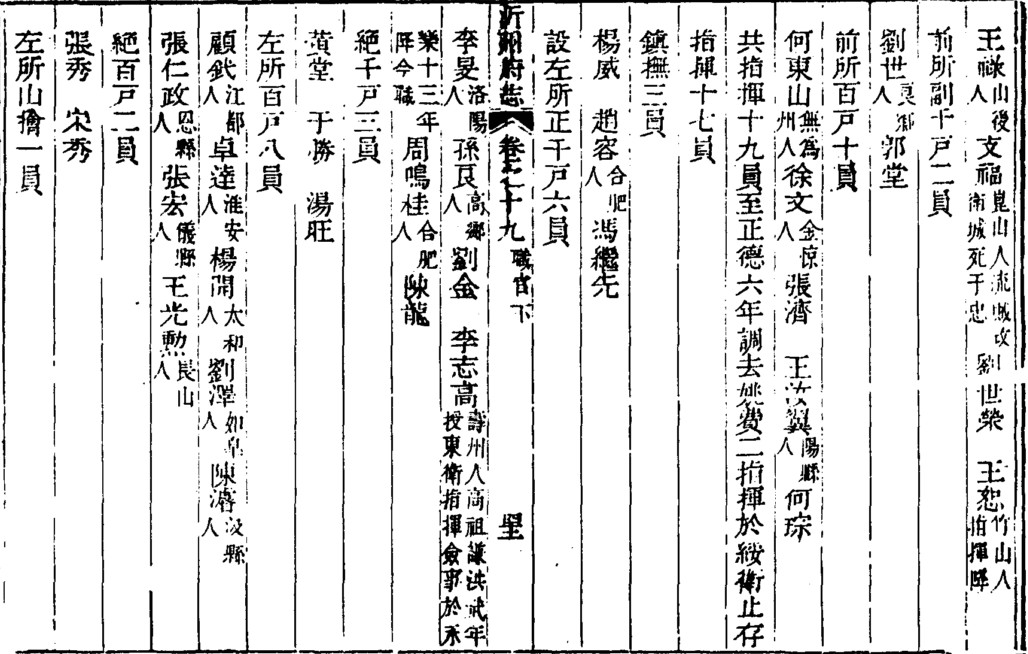 王祿山後人 文福崑山人流賊攻衛城死于忠 劉世榮 王恕竹山人指揮降
前所副千戸二員
劉世 人 郭堂
前所百戸十員
何東山無為州人 徐文人 張濟 王汝翼陽縣人 何琮
共指揮十九員至正德六年調去姚費二指揮於綏衛止存
指揮十七員
鎮撫三員
楊威 趙容合肥人 馮繼先
設左所正千戸六員
沂州府志 卷之十九 職官下
李旻洛陽人 孫艮高鄉人 劉金 李志高壽州人高祖謙洪武年授東衛指揮僉事於永
樂十三年降今職 周鳴桂合肥人 陳龍
絕千戸三員
黃堂 于勝 湯旺
左所百戸八員
顧鈥江都人 卓逵淮安人 楊開太和人 劉澤如皋人 陳濬汲縣人
張仁政恩縣人 張宏儀縣人 王光勲長山人
絕百戸二員
張秀 宋秀
左所山擔一員